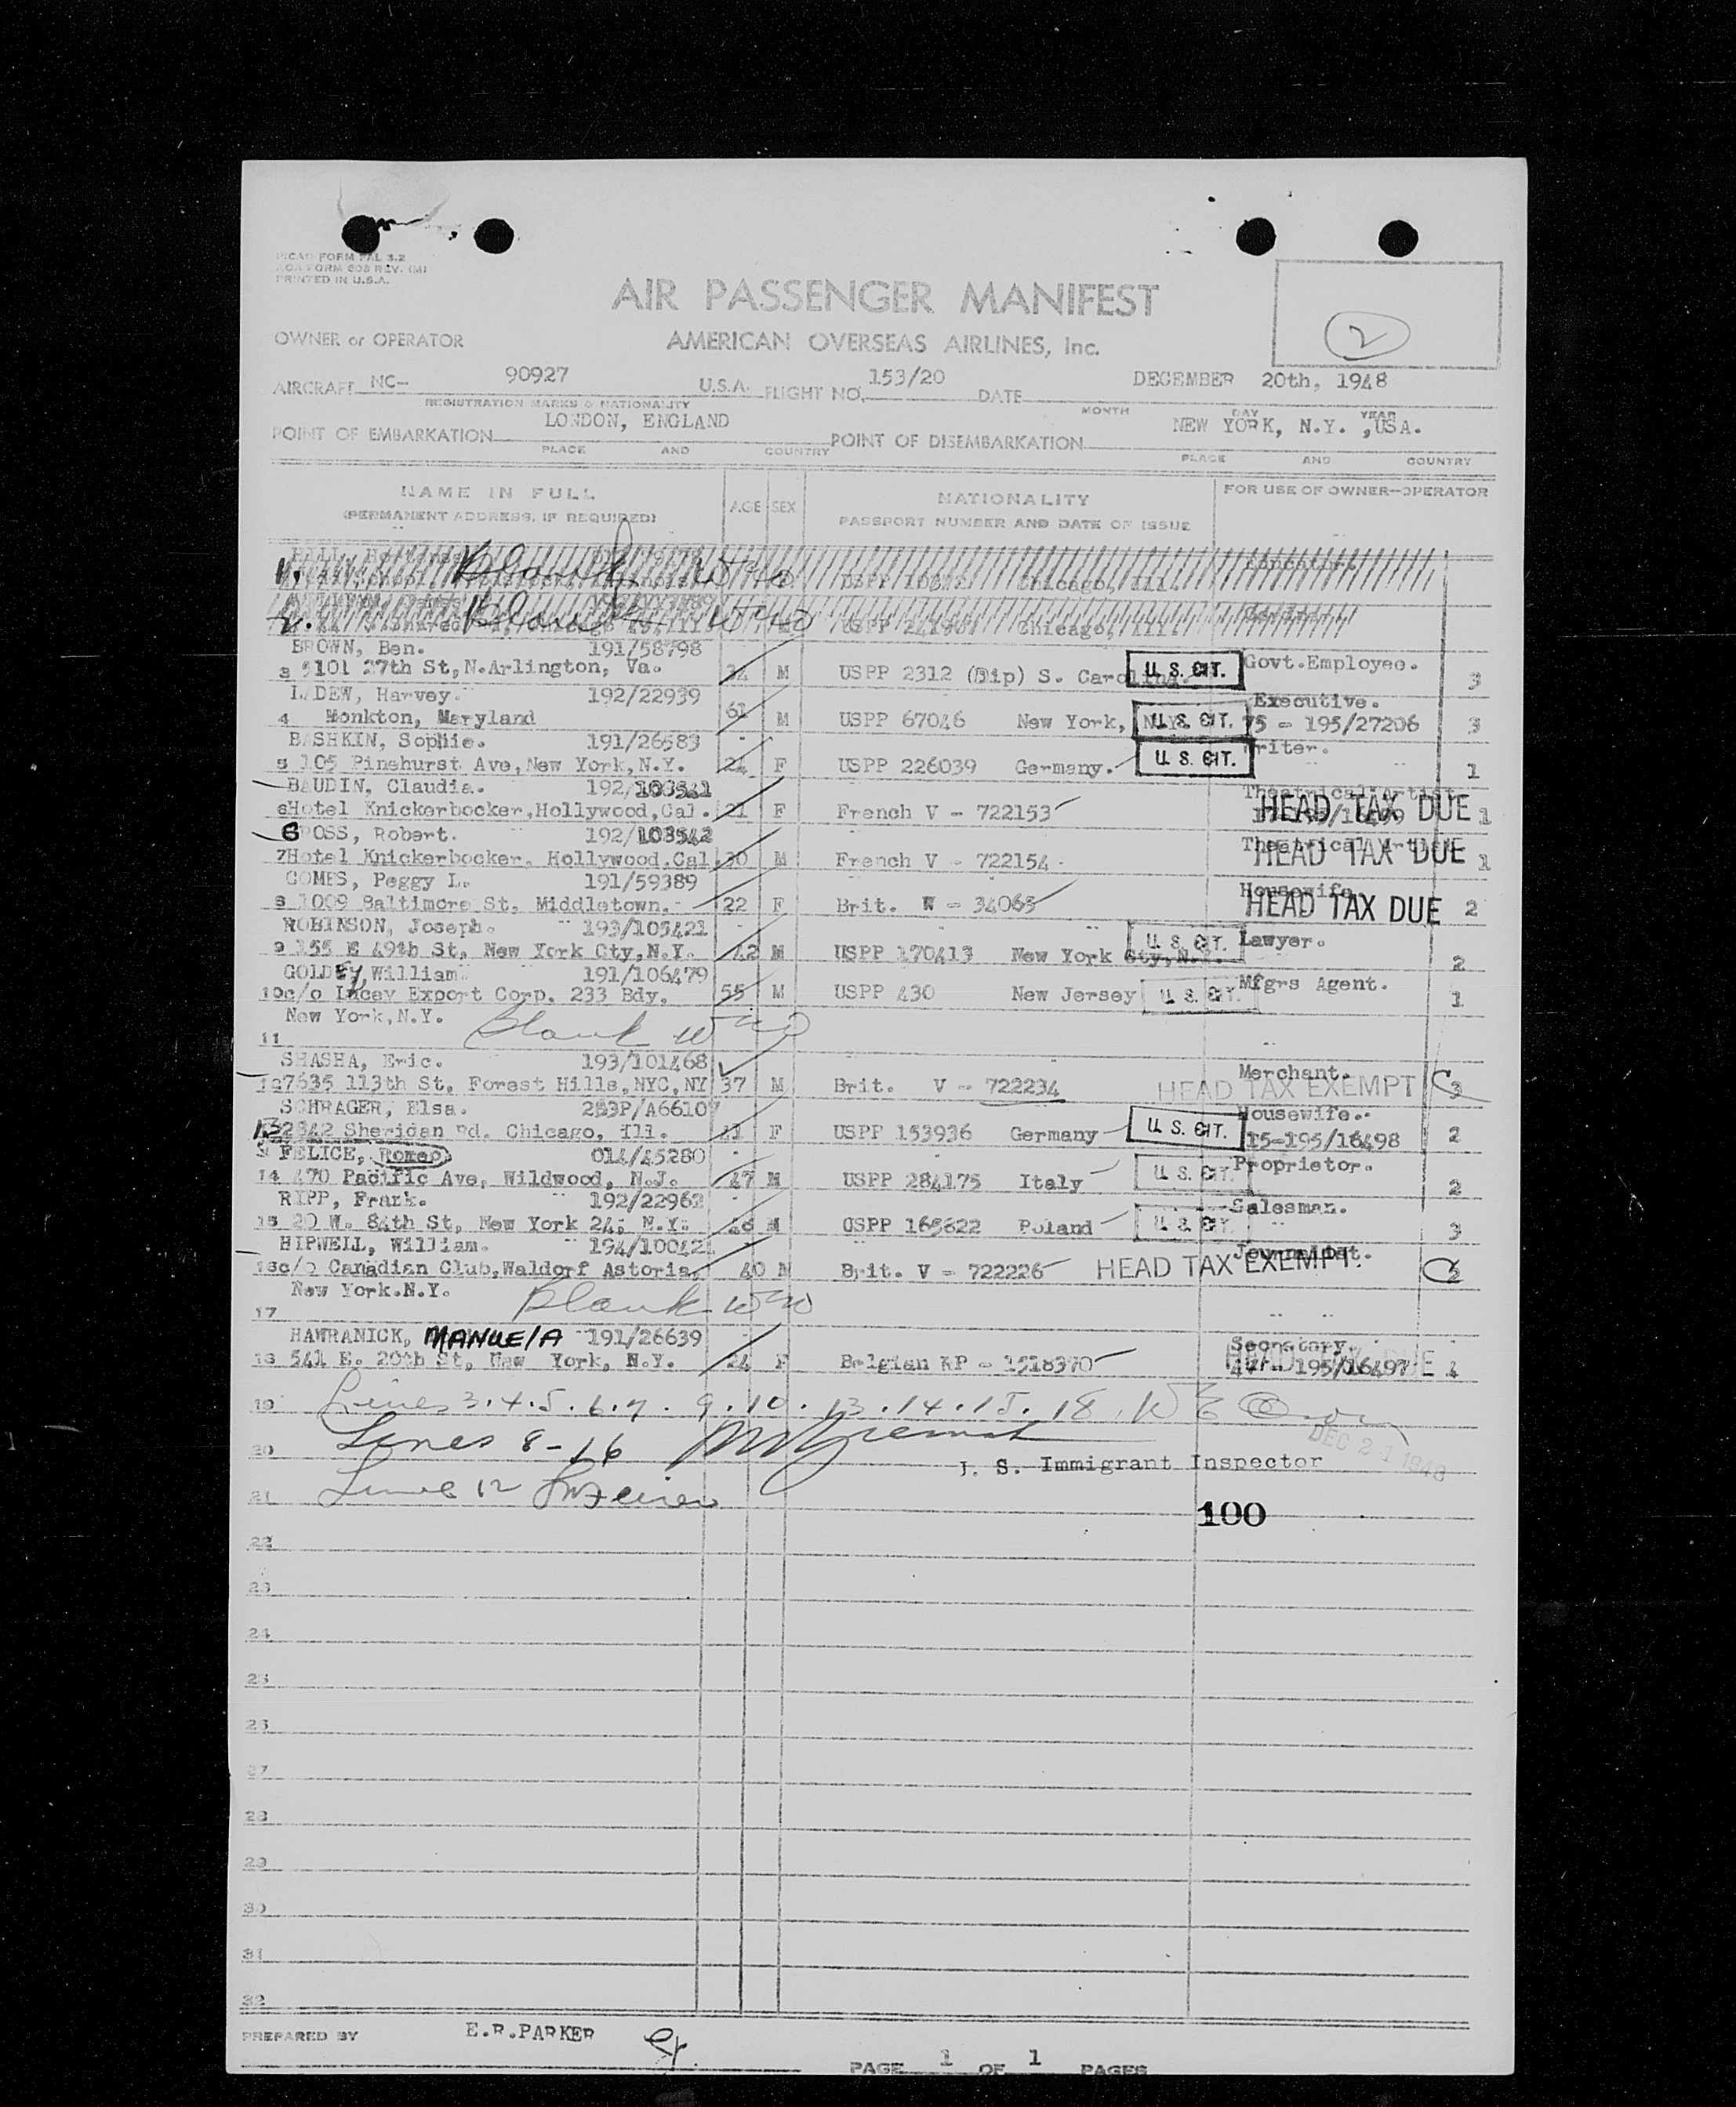 PRINTED IN U.S.A.
AIR PASSENGER MANIFEST
2
OWNER or OPERATOR AMERICAN OVERSEAS AIRLINES, Inc.
AIRCRAFT NC- 90927 U.S.A. FLIGHT NO. 153/20 DATE DECEMBER 20th, 1948
REGISTRATION MARKS & NATIONALITY MONTH DAY YEAR
POINT OF EMBARKATION LONDON, ENGLAND POINT OF DISEMBARKATION NEW YORK, N.Y. ,USA.
PLACE AND COUNTRY PLACE AND COUNTRY
NAME IN FULL AGE SEX NATIONALITY FOR USE OF OWNER-OPERATOR
(PERMANENT ADDRESS, IF REQUIRED) PASSPORT NUMBER AND DATE OF ISSUE
1. Blank Chicago, Ill.
2. Blank Chicago, Ill.
BROWN, Ben. 191/58798
3 5101 27th St,N.Arlington, Va. 34 M USPP 2312 (Dip) S. Carolina. U. S. CIT. Govt.Employee. 3
LADEW, Harvey. 192/22939 Executive.
4 Monkton, Maryland 61 M USPP 67046 New York, N.Y. U. S. CIT. 75 - 195/27206 3
BASHKIN, Sophie. 191/26583 Writer.
5 105 Pinehurst Ave,New York,N.Y. 24 F USPP 226039 Germany. U. S. CIT. 1
BAUDIN, Claudia. 192/103541 Theatrical Artist
6 Hotel Knickerbocker,Hollywood,Cal. 21 F French V - 722153 HEAD TAX DUE 1
GROSS, Robert. 192/103542 Theatrical Artist
7 Hotel Knickerbocker, Hollywood.Cal 30 M French V - 722154 HEAD TAX DUE 1
GOMES, Peggy L. 191/59389 Housewife.
8 1009 Baltimore St, Middletown. 22 F Brit. W - 34065 HEAD TAX DUE 2
ROBINSON, Joseph. 193/105421
9 155 E 49th St, New York Cty,N.Y. 42 M USPP 170413 New York Cty,N.Y. U. S. CIT. Lawyer. 2
GOLDEY, William. 191/106479
10 c/o Lacey Export Corp. 233 Bdy. 55 M USPP 430 New Jersey U. S. CIT. Mfgrs Agent. 1
New York,N.Y.
11 Blank
SHASHA, Eric. 193/101468 Merchant.
12 7635 113th St, Forest Hills,NYC,NY 37 M Brit. V - 722234 HEAD TAX EXEMPT 3
SCHRAGER, Elsa. 283P/A66107 Housewife.
13 2842 Sheridan Rd. Chicago, Ill. F USPP 153936 Germany U. S. CIT. 15-195/16498 2
FELICE, Romeo 014/45280
14 470 Pacific Ave, Wildwood, N.J. 47 M USPP 284175 Italy U. S. CIT. Proprietor. 2
RIPP, Frank. 192/22962
15 20 W. 84th St, New York 24, N.Y. M USPP 165622 Poland U. S. CIT. Salesman. 3
HIPWELL, William. 194/10042 Journalist.
16 c/o Canadian Club,Waldorf Astoria, 40 M Brit. V - 722226 HEAD TAX EXEMPT. 2
New York.N.Y.
17 Blank
HAWRANICK, MANUELA 191/26639 Secretary.
18 541 E. 20th St, New York, N.Y. 24 F Belgian RP - 1518370 HEAD TAX DUE 195/16497 1
19 Lines 3.4.5.6.7.9.10.13.14.15.18.
20 Lines 8-16
U. S. Immigrant Inspector DEC 21 1948
21 Line 12
100
22
23
24
25
26
27
28
29
30
31
32
PREPARED BY E.R.PARKER
PAGE 1 OF 1 PAGES